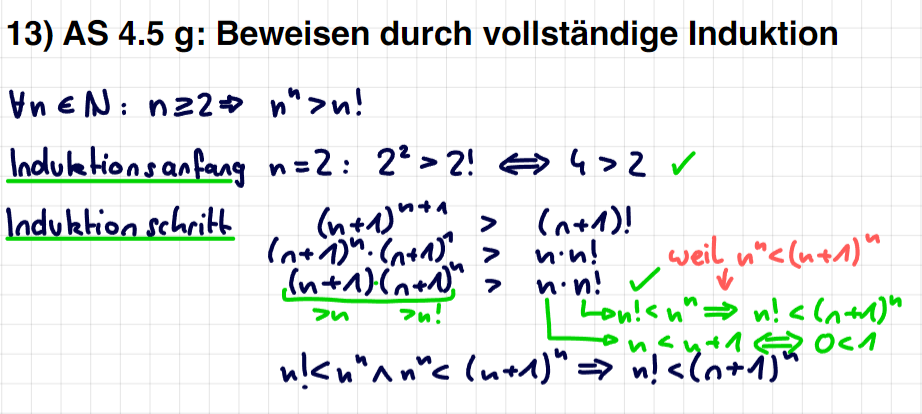 13) AS 4.5 g: Beweisen durch vollständige Induktion
∀n ∈ ℕ: n≥2 ⇒ nⁿ > n!
Induktionsanfang n=2: 2² > 2! ⇔ 4 > 2 ✓
Induktion schritt (n+1)ⁿ⁺¹ > (n+1)!
(n+1)ⁿ·(n+1)¹ > n·n! weil nⁿ<(n+1)ⁿ
(n+1)·(n+1)ⁿ > n·n! ✓ ↓
>n >n! ↳ n!<nⁿ ⇒ n! < (n+1)ⁿ
→ n < n+1 ⇔ 0<1
n!<nⁿ ∧ nⁿ < (n+1)ⁿ ⇒ n! <(n+1)ⁿ